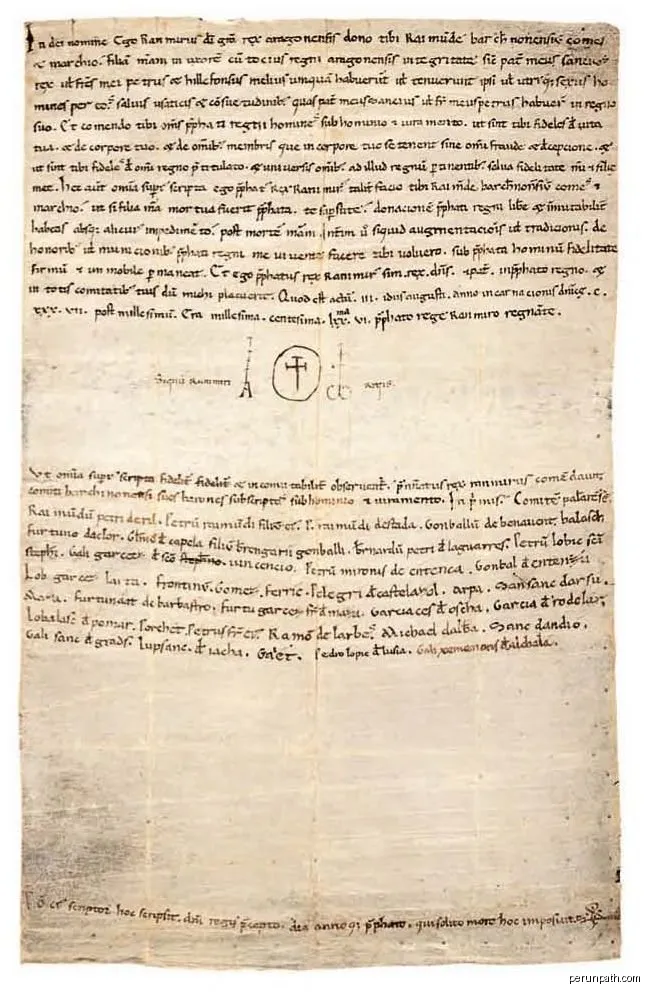 In dei nomine Ego Ranimirus di gra rex aragonensis dono tibi Raimunde barchinonensis comes
& marchio. filiam meam in uxorem cu tocius regni aragonensis integritate sic pater meus sancius
rex ul fres mei petrus & hillefonsus melius unquam habuerut ul tenuerunt ipsi ul utriq sexus ho
mines per eos. salvis usaticis & consuetudinib quas pat meus sancius ul fr meus petrus habuer in regno
suo. Et comendo tibi oms pphati regni homines sub hominio & iuramento. ut sint tibi fideles d vita
tua. & de corpore tuo. & de omib membris que in corpore tuo se tenent sine omi fraude & decepcione. &
ut sint tibi fideles d omi regno ptitulato. & universis omib ad illud regnu ptinentib. salva fidelitate mi & filie
mee. Hec aut omia supra scripta ego pphat Rex Ranimir talit facio tibi Raimde barchinonensium comes &
marchio. ut si filia mea mortua fuerit pphata. te supstite. donacione pphati regni libe & inmutabilit
habeas absq alicui impedimeto. post morte mam. Intim u siquid augmentacionis ul tradicionis. de
honorib ul municionib pphati regni me vivente facere tibi voluero. sub pphata hominu fidelitate
firmu & inmobile pmaneat. Et ego pphatus rex Ranimir sim rex. dns. & pat. in pphato regno. &
in totis comitatib tuis du michi placuerit. Quod est actu. iii. idus augusti. anno incarnacionis dnice. c.
xxx. vii. post millesimu. Era millesima. centesima. lxx. v. pphato rege Ranimiro regnate.
Signu Ranimiri regis.
Ut omia supra scripta fidelit fidelit & incomutabilit observent. pnnatus rex ranimirus comedavit
comiti barchinonensi suos barones subscriptos sub hominio & iuramento. In primis. Comite palarese.
Raimundu petri deril. Petru raimudi filiu ei. P. raimudi destada. Gonballu de benavent, balasch
furtuno daclor. Gllmo d capela filiu brengarii gonballi. bernardu petri d laguarres. Petru lobic scn
stephi. Gali garcez d sco vincencio. Petru mironis de entenca. Gonbal d entenza
Lob garcez laita. Frontinu. Gomez. Ferric. Pelegri d castelazol. Arpa. Sansanc darsu.
Maza. furtunat de barbastro. furtu garcez fr d maza. Garcia ces d oscha, Garcia d rodelar
Lobalasc d pomar. Porchet. Petrus fr ei. Ramo de larbes. Michael dalba. Sanc dandio.
Gali sanc d grads. lupsanc. d iacha. Galet. Pedro lopic d lusia. Gali xemenons d alchala.
scriptor hoc scripsit. dni regis pcepto. die annoq pphato. qui solito more hoc imposuit
perunpath.com